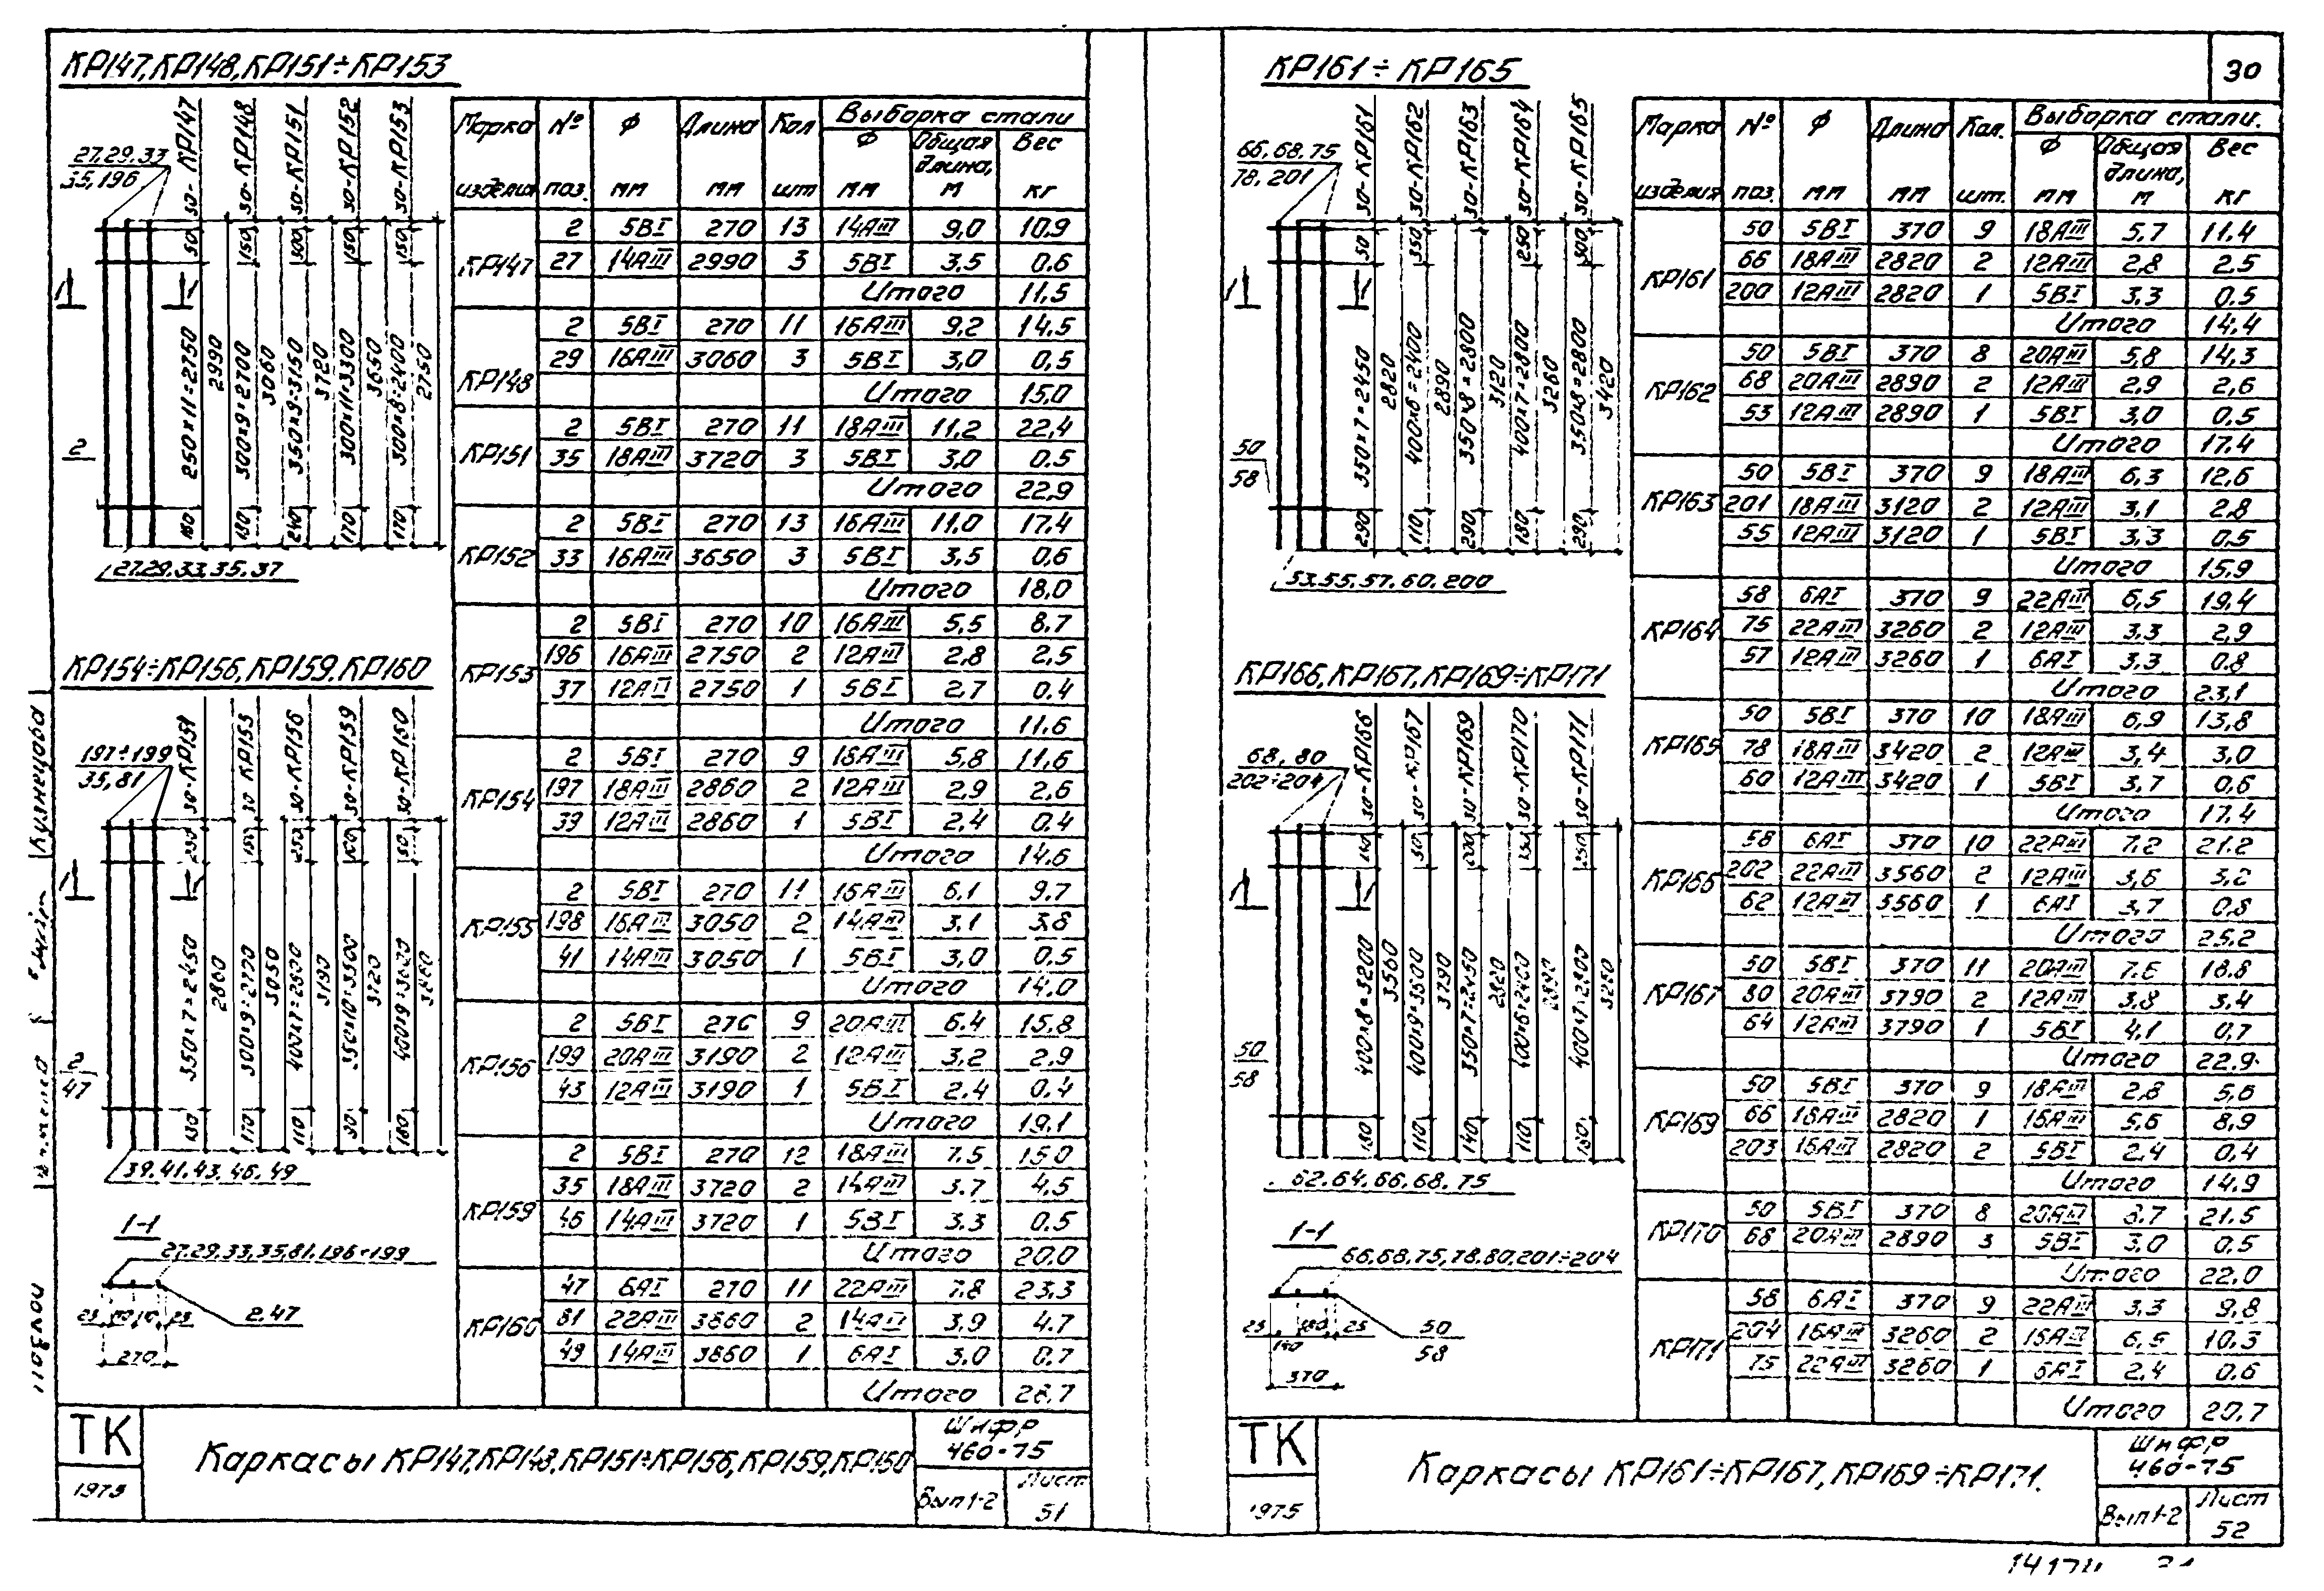 КР147, КР148, КР151÷КР153
27.29.33
35,196
30-КР147
30-КР148
30-КР151
30-КР152
30-КР153
50
150
300
150
150
250×11=2750
2990
300×9=2700
3060
350×9=3150
3720
300×11=3300
3650
300×8=2400
2750
180
180
240
170
170
1 1
2
27.29.33.35.37
Марка изделия № поз. Ф мм Длина мм Кол шт Выборка стали
Ф мм Общая длина, м Вес кг
КР147
2 5ВI 270 13 14АIII 9,0 10.9
27 14АIII 2990 3 5ВI 3,5 0.6
Итого 11,5
КР148
2 5ВI 270 11 16АIII 9,2 14,5
29 16АIII 3060 3 5ВI 3,0 0,5
Итого 15,0
КР151
2 5ВI 270 11 18АIII 11,2 22,4
35 18АIII 3720 3 5ВI 3,0 0.5
Итого 22,9
КР152
2 5ВI 270 13 16АIII 11.0 17.4
33 16АIII 3650 3 5ВI 3,5 0,6
Итого 18,0
КР153
2 5ВI 270 10 16АIII 5,5 8.7
196 16АIII 2750 2 12АIII 2,8 2,5
37 12АII 2750 1 5ВI 2,7 0.4
Итого 11.6
КР154÷КР156, КР159, КР160
197÷199
35,81
30-КР159
30-КР156
350×7=2450
2860
3050
3190
1 1
2
47
39.41.43.46.49
КР154
2 5ВI 270 9 18АIII 5,8 11,6
197 18АIII 2860 2 12АIII 2,9 2,6
39 12АIII 2860 1 5ВI 2,4 0.4
Итого 14.6
КР155
2 5ВI 270 11 16АIII 6.1 9.7
198 16АIII 3050 2 14АIII 3.1 3.8
41 14АIII 3050 1 5ВI 3,0 0.5
Итого 14.0
КР156
2 5ВI 9 20АIII 6.4 15.8
199 20АIII 3190 2 12АIII 3,2 2.9
43 12АIII 3190 1 5ВI 2.4 0.4
Итого 19.1
КР159
2 5ВI 270 12 18АIII 7.5 15.0
35 18АIII 3720 2 14АIII 3.7 4.5
46 14АIII 3720 1 5ВI 3.3 0.5
Итого 20.0
КР160
47 6АI 270 11 22АIII 7.8 23.3
81 22АIII 3860 2 3.9 4.7
49 14АIII 3860 1 6АI 3.0 0.7
Итого 28.7
1-1
27.29.33,35,81.196÷199
2.47
25
25
270
ТК
1975
Каркасы КР147, КР148, КР151÷КР156, КР159, КР160
Шифр
460-75
Вып 1-2
Лист
51
Кузнецова
30
КР161÷КР165
66,68.75
78,201
30-КР161
30-КР162
30-КР163
30-КР164
30-КР165
50
350
250
300
350×7=2450
2820
400×6=2400
2890
350×8=2800
3120
400×7=2800
3260
350×8=2800
3420
290
110
290
180
290
1 1
50
58
53.55.57.60.200
Марка изделия № поз. Ф мм Длина мм Кол. шт. Выборка стали.
Ф мм Общая длина, м Вес кг
КР161
50 5ВI 370 9 18АIII 5,7 11.4
66 18АIII 2820 2 12АIII 2,8 2.5
200 12АIII 2820 1 5ВI 3,3 0.5
Итого 14.4
КР162
50 5ВI 370 8 20АIII 5,8 14,3
68 20АIII 2890 2 12АIII 2.9 2,6
53 12АIII 2890 1 5ВI 3,0 0.5
Итого 17.4
КР163
50 5ВI 370 9 18АIII 6,3 12,6
201 18АIII 3120 2 12АIII 3,1 2.8
55 12АIII 3120 1 5ВI 3,3 0.5
Итого 15.9
КР164
58 6АI 370 9 22АIII 6,5 19.4
75 22АIII 3260 2 12АIII 3.3 2,9
57 12АIII 3260 1 6АI 3.3 0.8
Итого 23,1
КР165
50 5ВI 370 10 18АIII 6,9 13,8
78 18АIII 3420 2 12АIII 3,4 3,0
60 12АIII 3420 1 5ВI 3,7 0,6
Итого 17.4
КР166, КР167, КР169÷КР171
68,80
202÷204
30-КР166
30-КР167
30-КР169
30-КР170
30-КР171
400×8=3200
3560
3790
350×7=2450
2820
1 1
50
58
62.64.66.68.75
КР166
58 6АI 370 10 22АIII 7.2 21.2
202 22АIII 3560 2 12АIII 3,6 3,2
62 12АIII 3560 1 6АI 3,7 0,8
Итого 25.2
КР167
50 5ВI 370 11 20АIII 18.8
80 20АIII 3790 2 12АIII 3,8 3,4
64 12АIII 3790 1 5ВI 4,1 0,7
Итого 22.9
КР169
50 5ВI 370 9 18АIII 2,8 5,6
66 18АIII 2820 1 16АIII 5,6 8,9
203 16АIII 2820 2 5ВI 2.4 0.4
Итого 14.9
КР170
50 5ВI 370 8 20АIII 8.7 21.5
68 20АIII 2890 3 5ВI 3,0 0.5
Итого 22.0
КР171
58 6АI 370 9 22АIII 3.3 9,8
204 16АIII 3260 2 6,5 10.3
75 22АIII 3260 1 6АI 2.4 0.6
Итого 20.7
1-1
66,68.75,78.80,201÷204
25
25
370
50
58
ТК
1975
Каркасы КР161÷КР167, КР169÷КР171.
Шифр
460-75
Вып 1-2
Лист
52